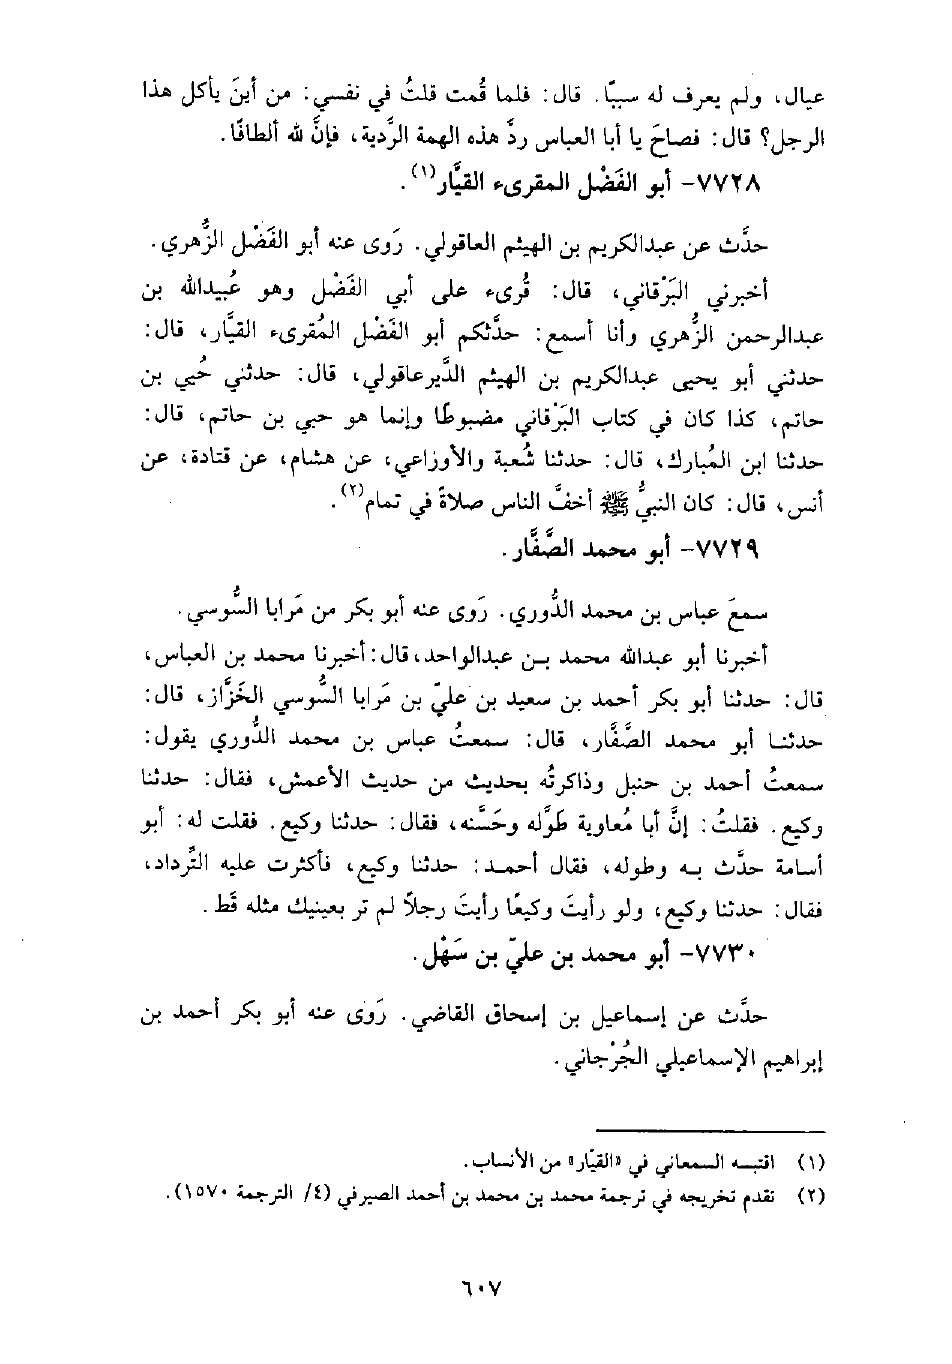 عيال، ولم يعرف له سببًا. قال: فلما قُمت قلتُ في نفسي: من أينَ يأكل هذا
الرجل؟ قال: فصاحَ يا أبا العباس ردَّ هذه الهمة الرَّدية، فإنَّ لله ألطافًا.
٧٧٢٨- أبو الفَضْل المقرىء القيَّار(١).
حدَّث عن عبدالكريم بن الهيثم العاقولي. رَوى عنه أبو الفَضْل الزُّهري.
أخبرني البَرْقاني، قال: قُرىء على أبي الفَضْل وهو عُبيدالله بن
عبدالرحمن الزُّهري وأنا أسمع: حدَّثكم أبو الفَضْل المُقرىء القيَّار، قال:
حدثني أبو يحيى عبدالكريم بن الهيثم الدَّيرعاقولي، قال: حدثني حُيي بن
حاتم، كذا كان في كتاب البَرْقاني مضبوطًا وإنما هو حبي بن حاتم، قال:
حدثنا ابن المُبارك، قال: حدثنا شُعبة والأوزاعي، عن هشام، عن قتادة، عن
أنس، قال: كان النبيُّ ﷺ أخفَّ الناس صلاةً في تمام(٢).
٧٧٢٩- أبو محمد الصَّفَّار.
سمعَ عباس بن محمد الدُّوري. رَوى عنه أبو بكر من مَرابا السُّوسي.
أخبرنا أبو عبدالله محمد بن عبدالواحد، قال: أخبرنا محمد بن العباس،
قال: حدثنا أبو بكر أحمد بن سعيد بن عليّ بن مَرابا السُّوسي الخَزَّاز، قال:
حدثنا أبو محمد الصَّفَّار، قال: سمعتُ عباس بن محمد الدُّوري يقول:
سمعتُ أحمد بن حنبل وذاكرتُه بحديث من حديث الأعمش، فقال: حدثنا
وكيع. فقلتُ: إنَّ أبا مُعاوية طَوَّله وحَسَّنه، فقال: حدثنا وكيع. فقلت له: أبو
أسامة حدَّث به وطوله، فقال أحمد: حدثنا وكيع، فأكثرت عليه التَّرداد،
فقال: حدثنا وكيع، ولو رأيتَ وكيعًا رأيتَ رجلاً لم تر بعينيك مثله قَط.
٧٧٣٠- أبو محمد بن عليّ بن سَهْل.
حدَّث عن إسماعيل بن إسحاق القاضي. رَوى عنه أبو بكر أحمد بن
إبراهيم الإسماعيلي الجُرْجاني.
(١) اقتبسه السمعاني في «القيّار» من الأنساب.
(٢) تقدم تخريجه في ترجمة محمد بن محمد بن أحمد الصيرفي (٤/ الترجمة ١٥٧٠).
٦٠٧